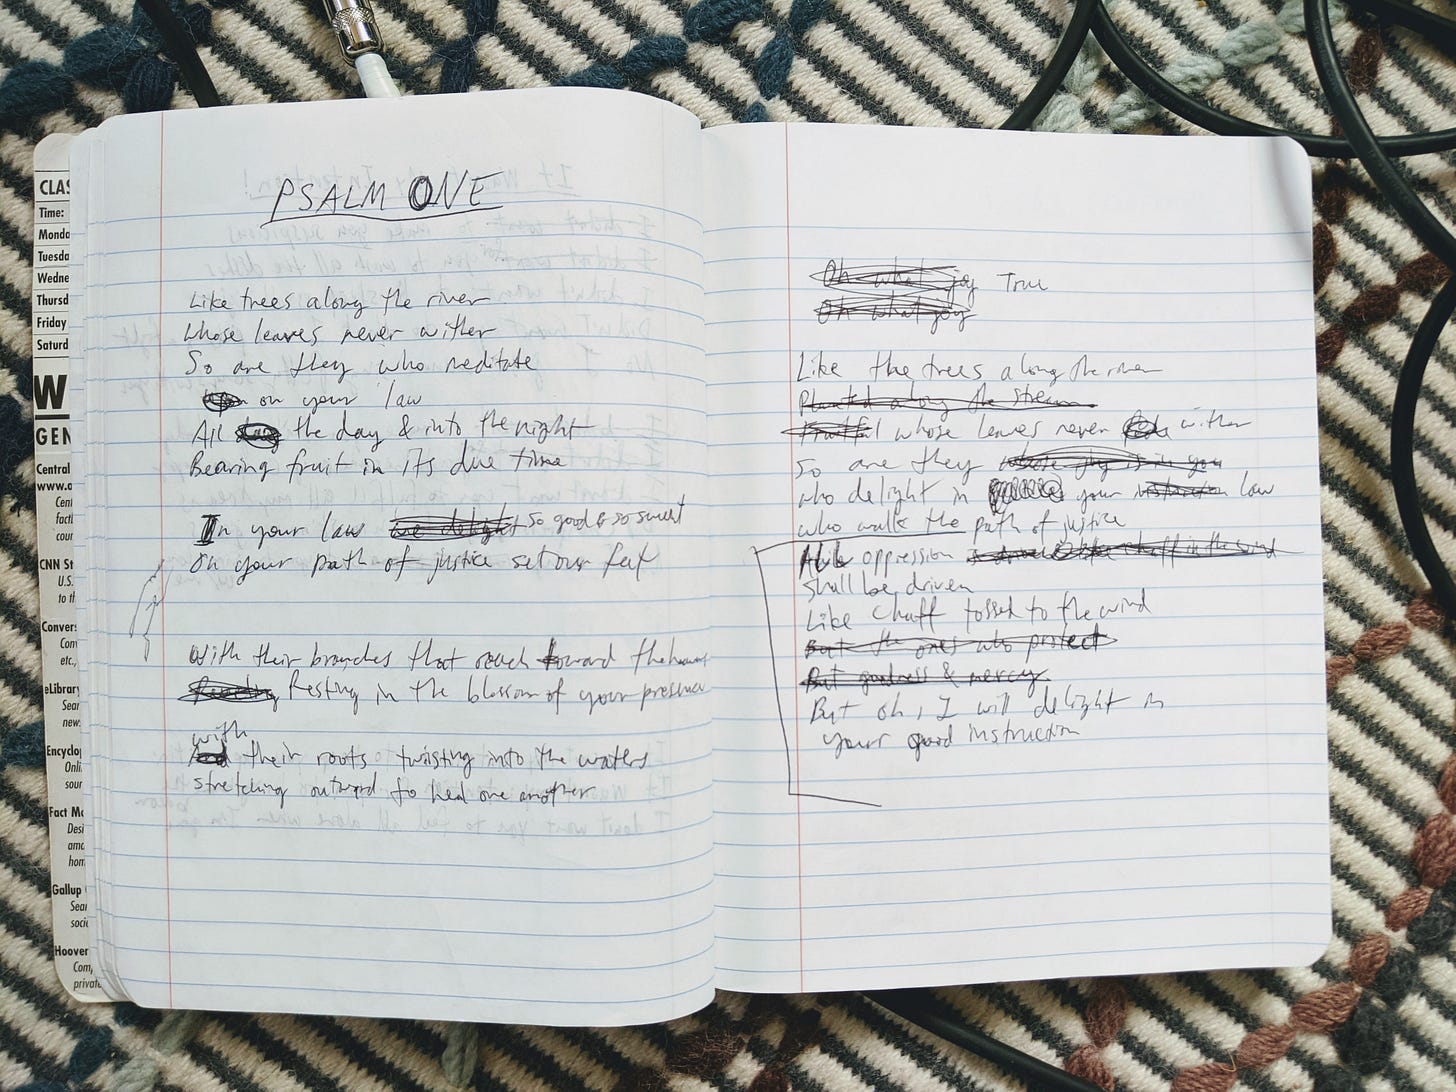 CLAS
Time:
Monda
Tuesda
Wedne
Thursd
Friday
Saturd
W
GEN
Central
www.a
Cent
facti
cour
CNN St
U.S.
to th
Convers
Conv
etc.,
eLibrary
Sear
news
Encyclop
Onli
sour
Fact Mo
Desi
ama
hom
Gallup
Sear
socie
Hoover
Com
privat
PSALM ONE
Like trees along the river
Whose leaves never wither
So are they who meditate
on your law
All the day & into the night
Bearing fruit in its due time
In your law are delight so good & so sweet
On your path of justice set our feet
With their branches that reach toward the heavens
Resting in the blossom of your presence
with
their roots twisting into the waters
stretching outward to heal one another
Oh what joy True
Oh what joy
Like the trees along the river
Planted along the stream
Fruitful whose leaves never wither
So are they whose joy is in you
who delight in your instruction law
who walk the path of justice
All oppression is like chaff in the wind
shall be driven
Like chaff tossed to the wind
But the ones who protect
But goodness & mercy
But oh, I will delight in
your good instruction